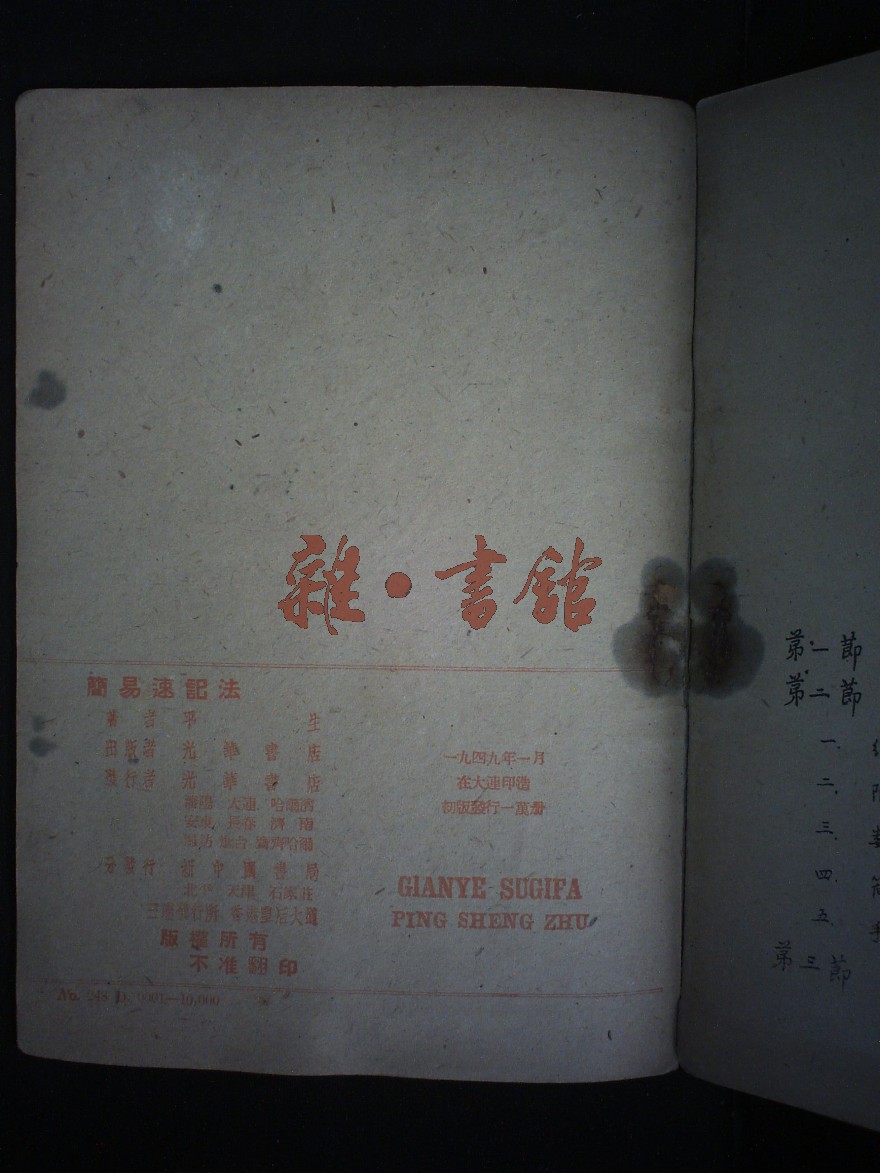 雜·書館
簡易速記法
著者 平生
出版者 光華書店
發行者 光華書店
瀋陽 大連 哈爾濱
安東 長春 濟南
齊齊哈爾
分發行 新中國書局
北平 天津 石家莊
三聯發行所 香港皇后大道
版權所有
不准翻印
一九四九年一月
在大連印造
初版發行一萬册
GIANYE SUGIFA
PING SHENG ZHU
No. 248 D. 0001—10,000
第一節
第二節
一、
二、
三、
四、
五、
第三節